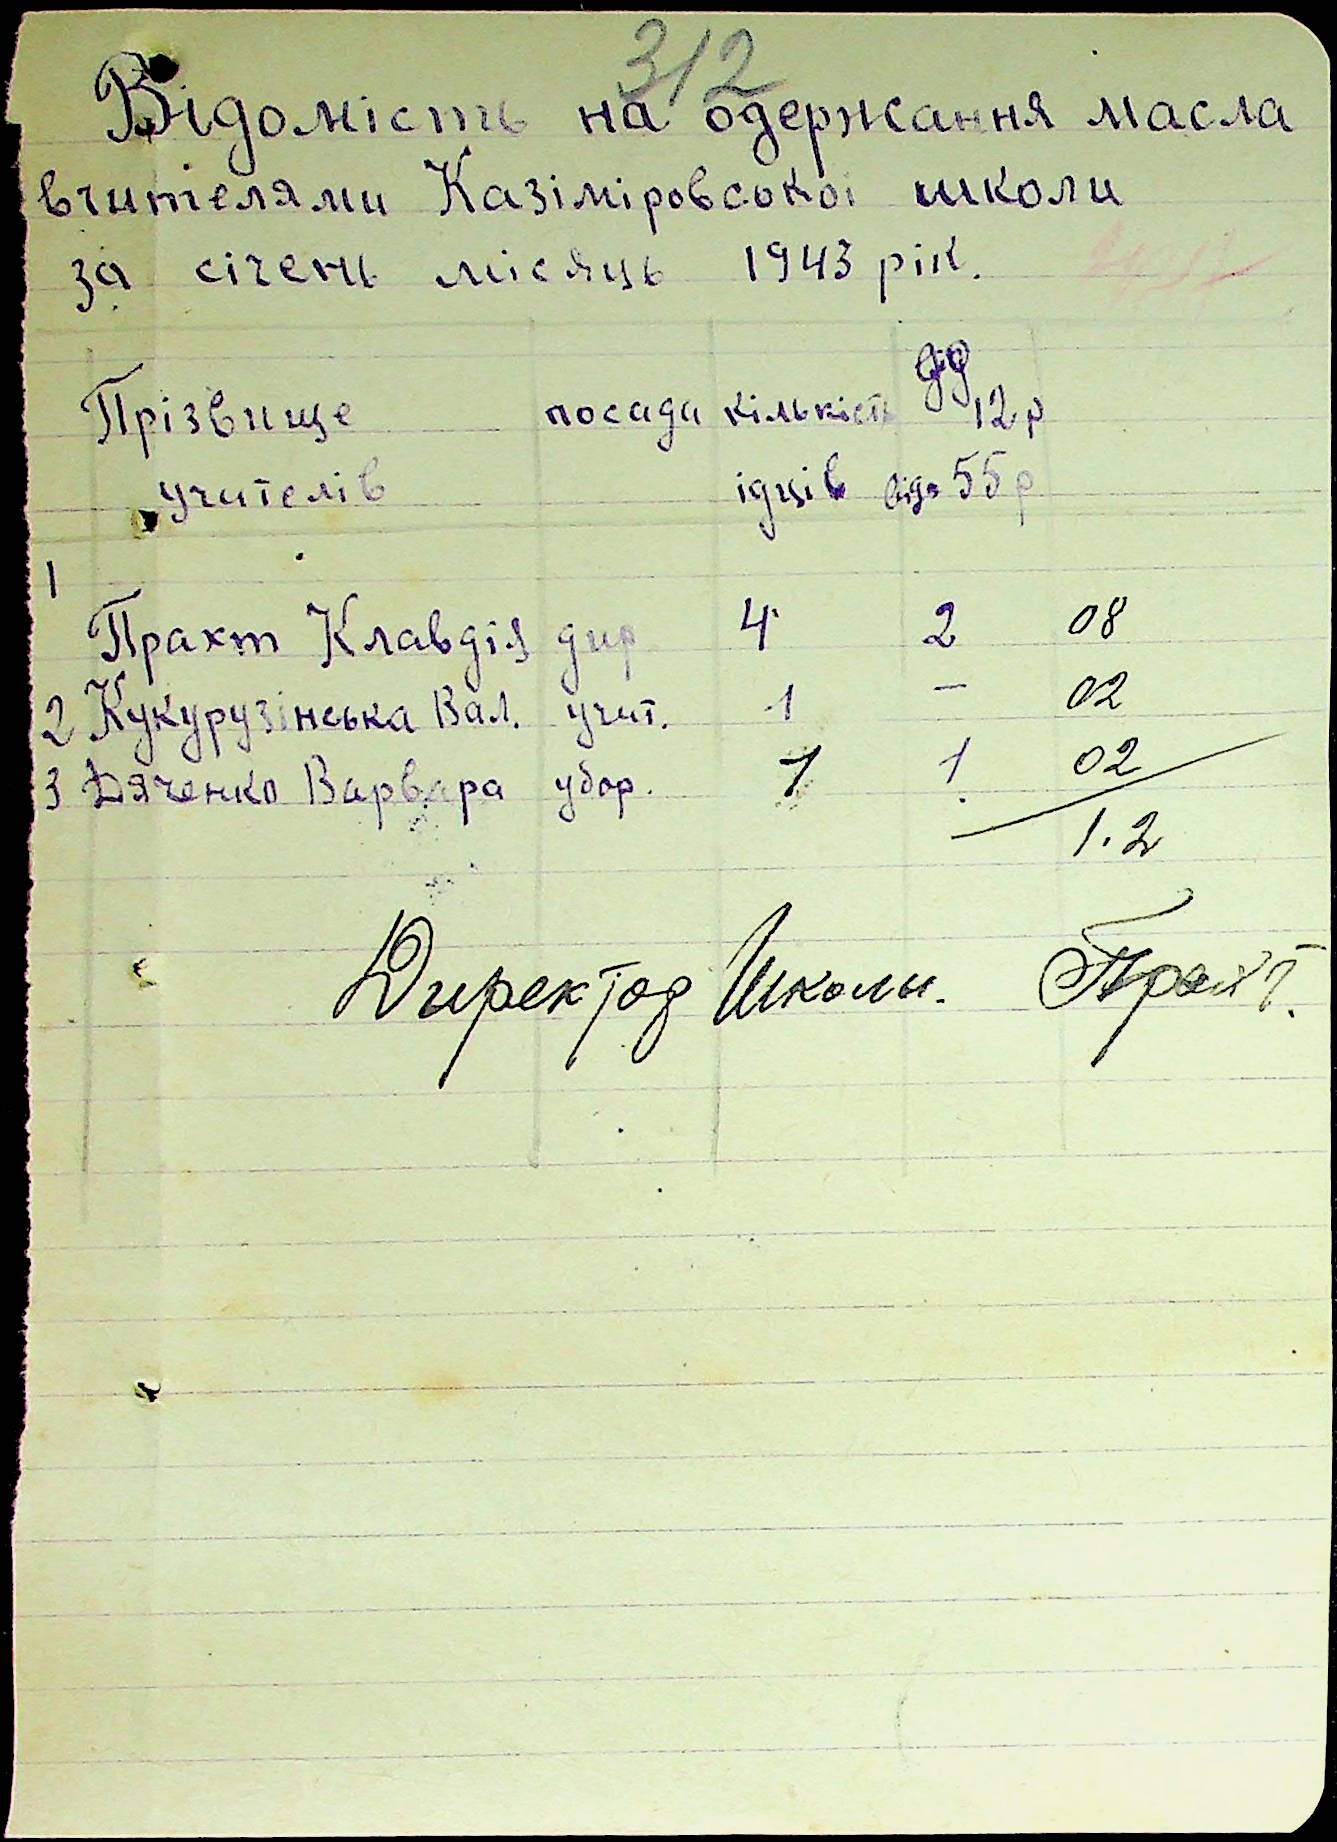 312
Відомість на одержання масла
вчителями Казіміровської школи
за січень місяць 1943 рік.
Прізвище посада кількість від 12 р
учителів їдців від 55 р
1
Прахт Клавдія дир 4 2 08
2 Кукурузінська Вал. учит. 1 – 02
3 Дяченко Варвара убор. 1 1 02
1.2
Директор Школи. Прахт.